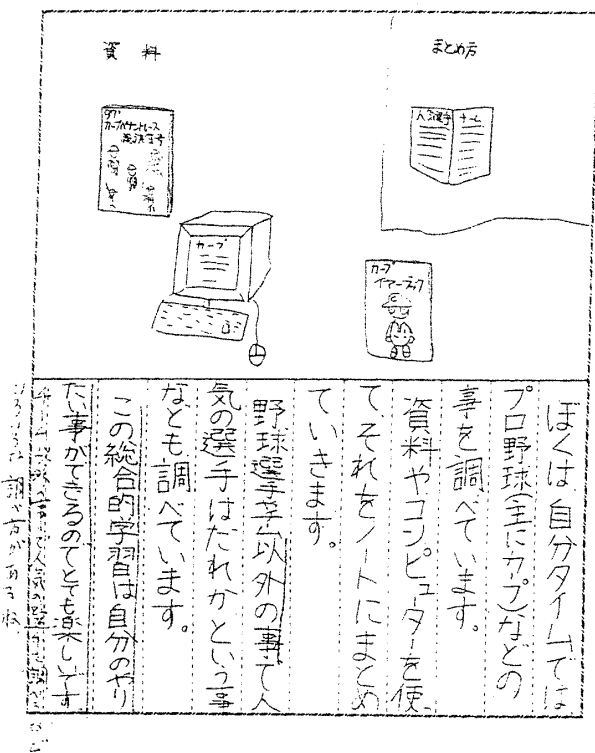 資料
まとめ方
人気選手
チーム
カープ
カープ
イヤーブック
ぼくは自分タイムでは
プロ野球(主にカープ)などの
事を調べています。
資料やコンピューターを使っ
て、それをノートにまとめ
ていきます。
野球選手以外の事で人
気の選手はだれかという事
なども調べています。
この総合的学習は自分のやり
たい事ができるのでとても楽しいです
調べ方があるね